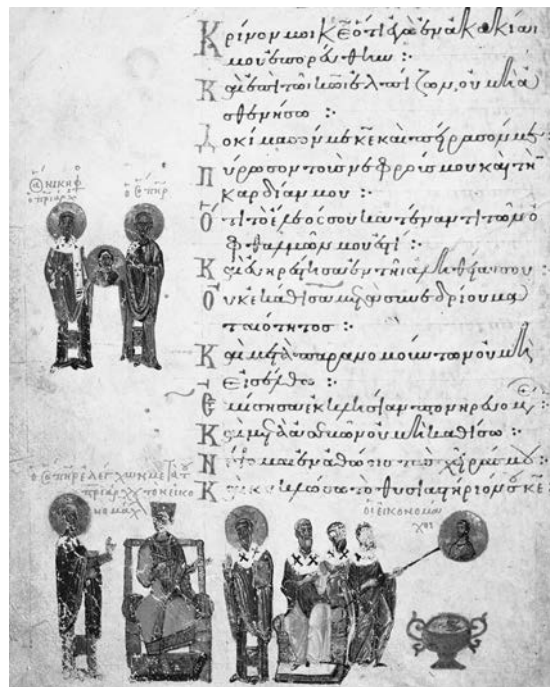 Κρίνόν μοι κ̅ε̅ ὅτι ἐγὼ ἐν ἀκακίαι
μου ἐπορεύθην :·
Καὶ ἐπὶ τῶι κ̅ω̅ι ἐλπίζων, οὐ μὴ ἀ
σθενήσω :·
Δοκίμασόν με κ̅ε̅ καὶ πείρασόν με·
Πύρωσον τοὺς νεφρούς μου καὶ τὴν
καρδίαν μου :·
Ὅτι τὸ ἔλεός σου κατέναντι τῶν ὀ
φθαλμῶν μου ἐστί :·
Καὶ εὐηρέστησα ἐν τῆι ἀληθείαι σου
Οὐκ ἐκάθισα μετὰ συνεδρίου μα
ταιότητος :·
Καὶ μετὰ παρανομούντων οὐ μὴ
εἰσέλθω :·
Ἐμίσησα ἐκκλησίαν πονηρευομε
Καὶ μετὰ οὐ μὴ καθίσω :·
Νίψομαι ἐν ἀθώοις τὰς χεῖράς μου :·
Καὶ κυκλώσω τὸ θυσιαστήριόν σου κ̅ε̅
ὁ ἅ νικηφ
ὁ πριάρχ
ὁ σ̅π̅η̅ρ̅
ὁ σ̅π̅η̅ρ̅ ἐλέγχων μετὰ τ
πριάρχ τὸν εἰκο
νομάχ
οἱ εἰκονομά
χοι